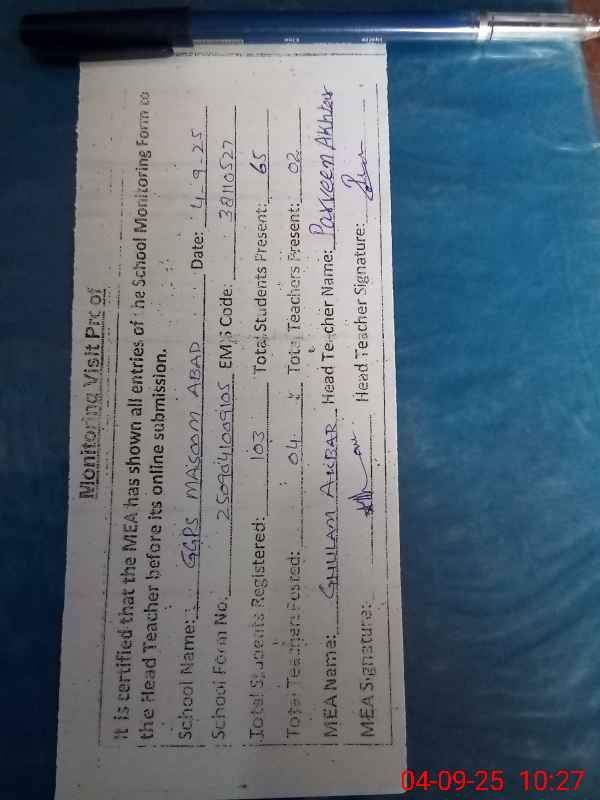 Monitoring Visit Proof
It is certified that the MEA has shown all entries of the School Monitoring Form to
the Head Teacher before its online submission.
School Name: GGPS MASOOM ABAD Date: 4-9-25
School Form No. EMIS Code: 38110527
Total Students Registered: 103 Total Students Present: 65
Total Teachers Posted: 04 Total Teachers Present: 02
MEA Name: GHULAM AKBAR Head Teacher Name: Parveen Akhtar
MEA Signature: Head Teacher Signature:
04-09-25 10:27